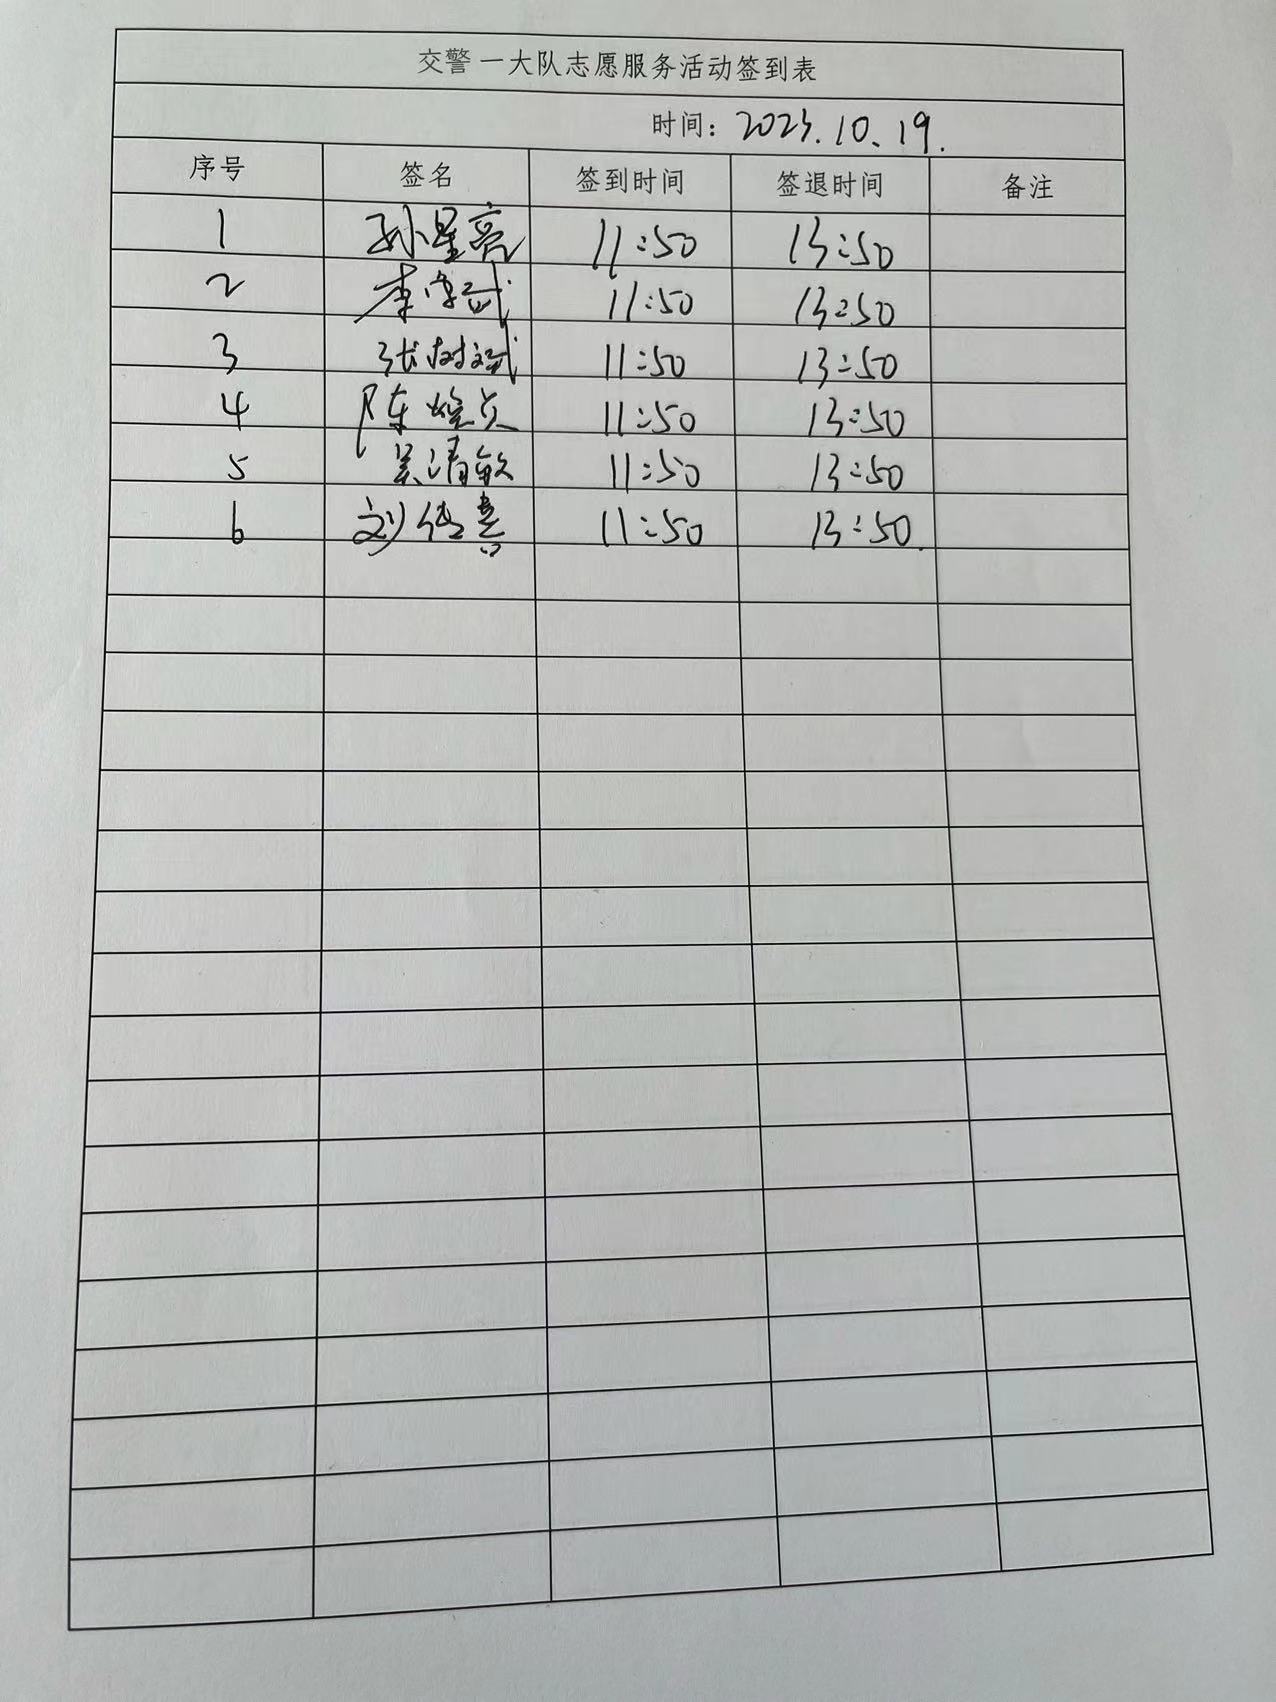 交警一大队志愿服务活动签到表
时间：2023.10.19.
序号 签名 签到时间 签退时间 备注
1 孙星亮 11:50 13:50
2 李 11:50 13:50
3 张树斌 11:50 13:50
4 陈煌贞 11:50 13:50
5 吴清敏 11:50 13:50
6 刘传喜 11:50 13:50.